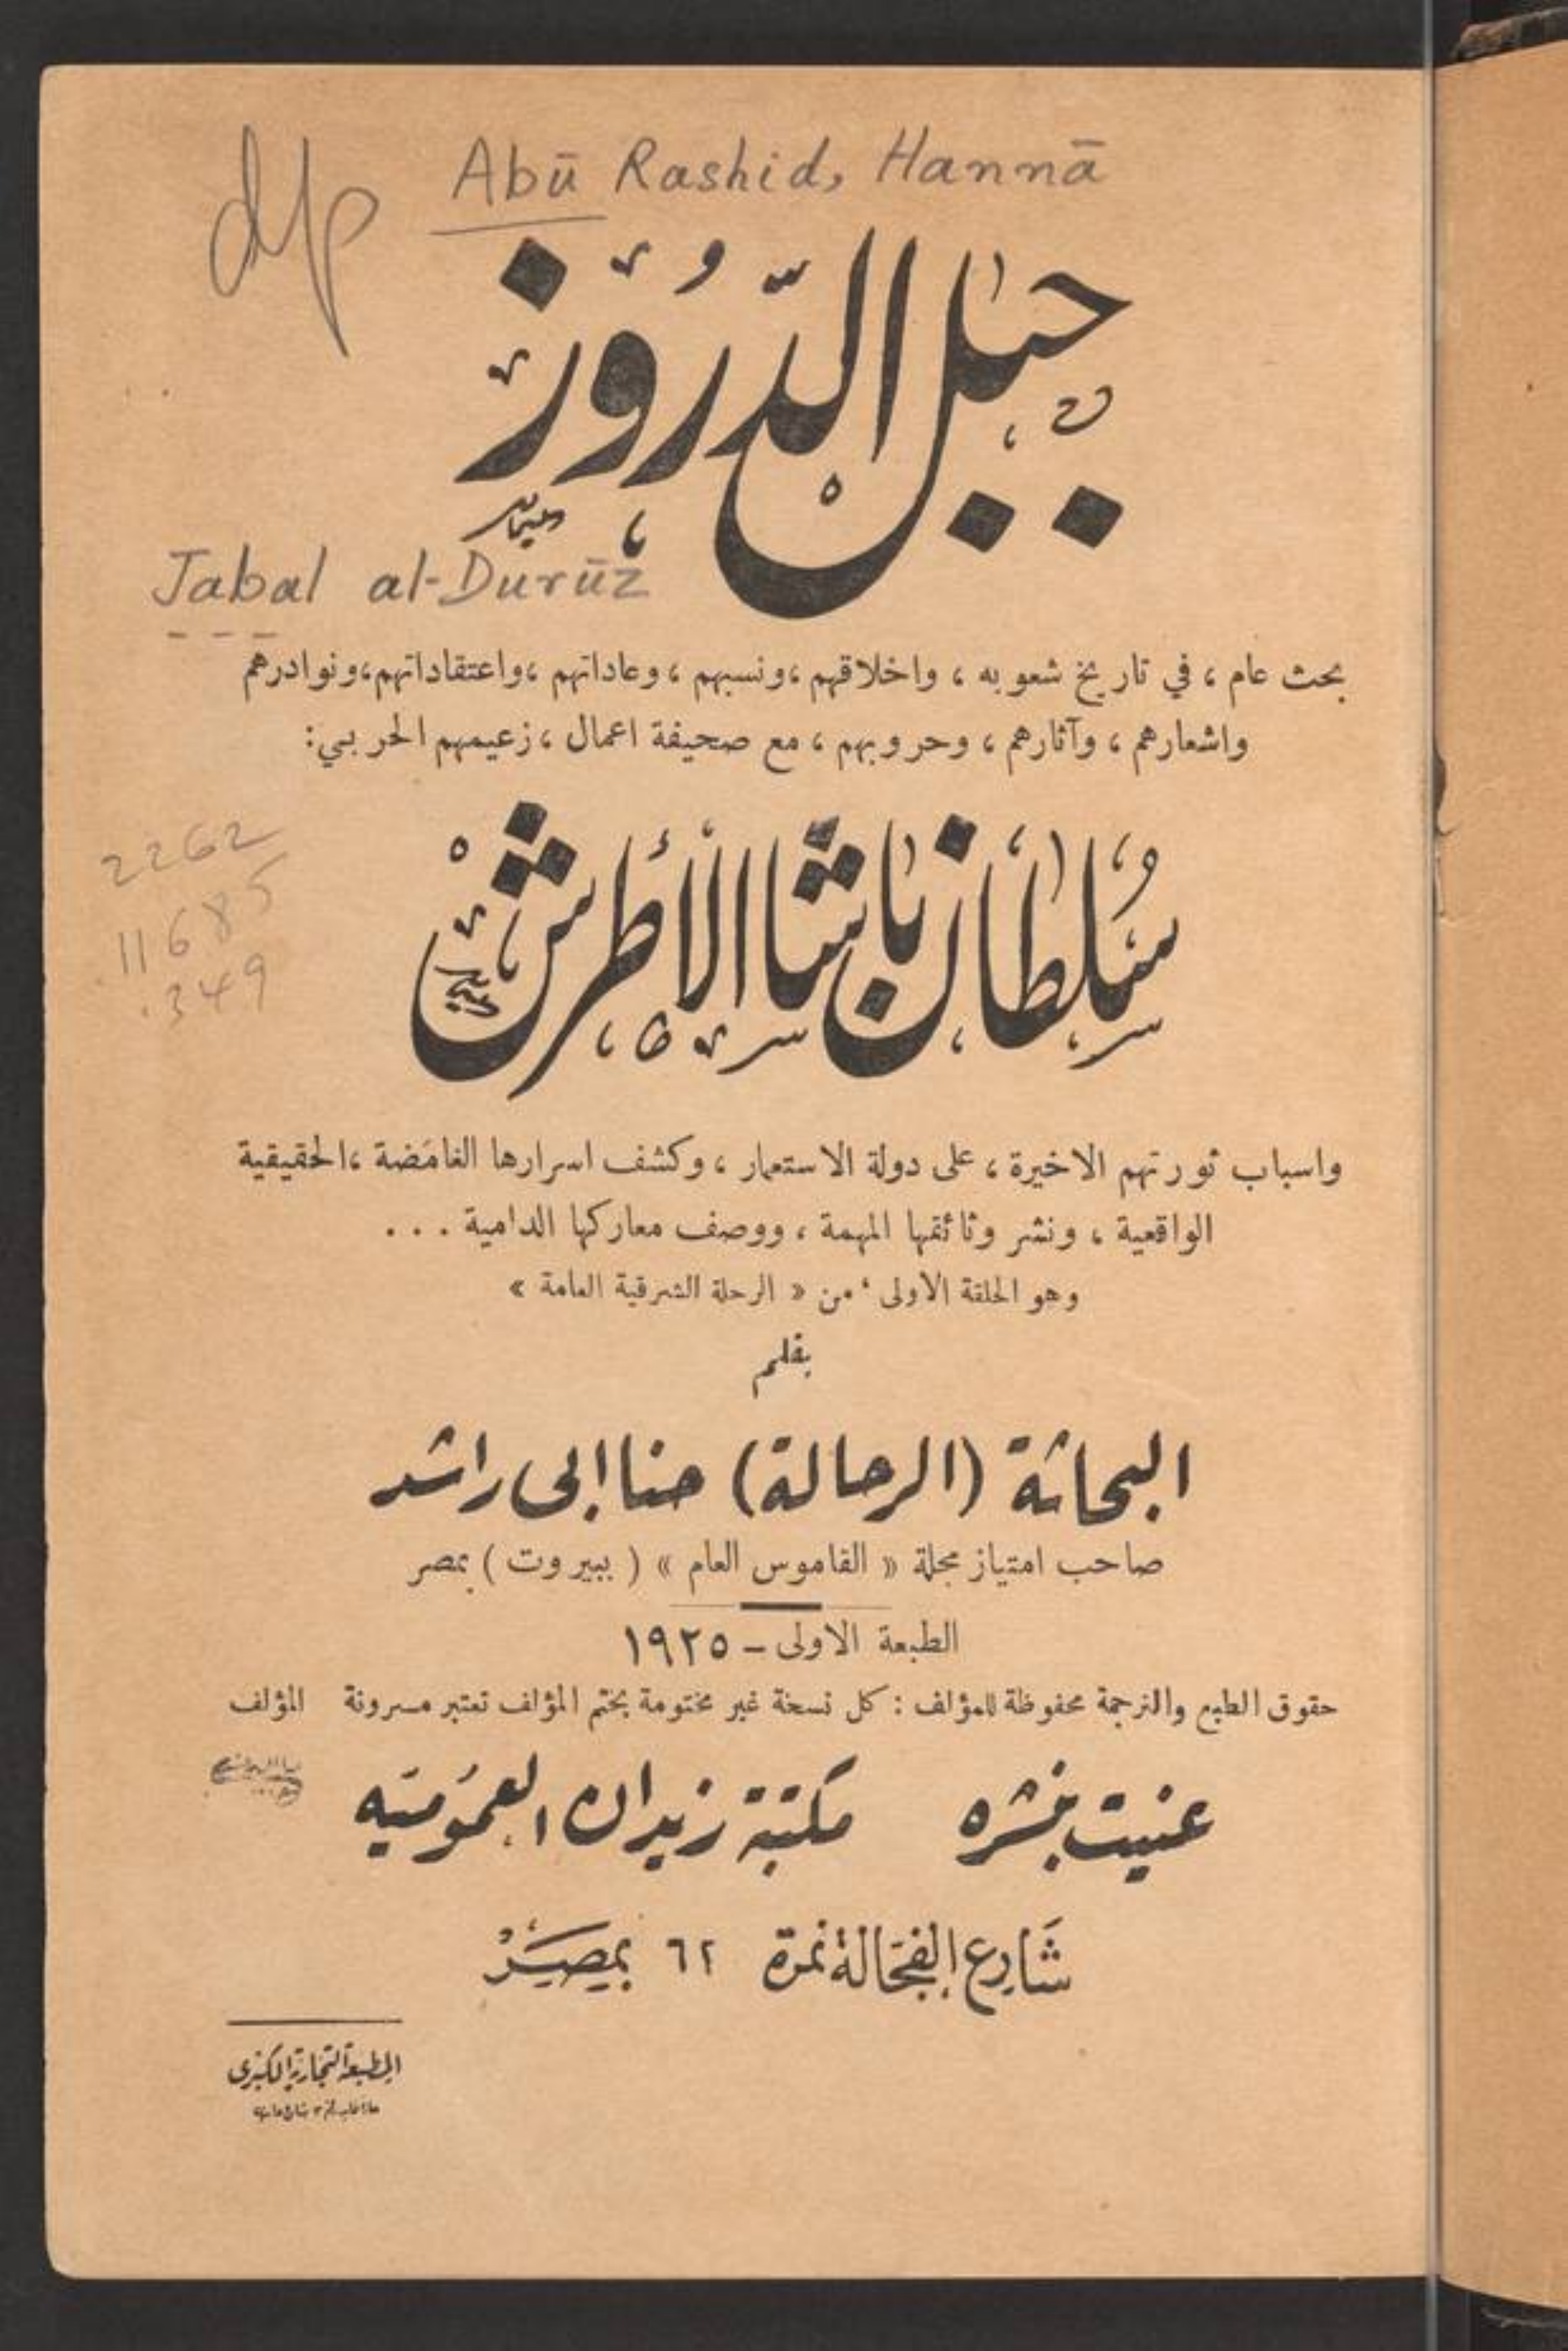 dp
Abū Rashid, Hannā
جبل الدّرُوز
Jabal al-Durūz
بحث عام ، في تاريخ شعوبه ، واخلاقهم ، ونسبهم ، وعاداتهم ، واعتقاداتهم ، ونوادرهم
واشعارهم ، وآثارهم ، وحروبهم ، مع صحيفة اعمال ، زعيمهم الحربي :
2262
.11685
.349
سُلطان باشا الأطرش
واسباب ثورتهم الاخيرة ، على دولة الاستعمار ، وكشف اسرارها الغامضة ، الحقيقية
الواقعية ، ونشر وثائقها المهمة ، ووصف معاركها الدامية . . .
وهو الحلقة الاولى ، من « الرحلة الشرقية العامة »
بقلم
البحاثة (الرحالة) حنا ابى راشد
صاحب امتياز مجلة « القاموس العام » ( ببيروت ) بمصر
الطبعة الاولى - ١٩٢٥
حقوق الطبع والترجمة محفوظة للمؤلف : كل نسخة غير مختومة بختم المؤلف تعتبر مسروقة المؤلف
عنيت بنشره مكتبة زيدان العمومية
شارع الفجالة نمرة ٦٢ بمصر
المطبعة التجارية الكبرى